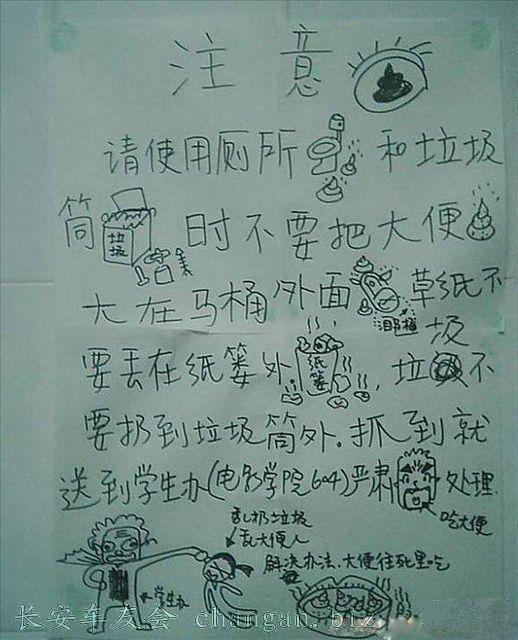 注意
请使用厕所和垃圾
筒垃圾时不要把大便
大在马桶外面草纸不
要丢在纸篓纸篓外.垃圾不
要扔到垃圾筒外.抓到就
送到学生办(电影学院604)严肃处理
吃大便
乱扔垃圾
乱大便人
学生办
解决办法、大便往死里吃
长安车友会 changan.biz